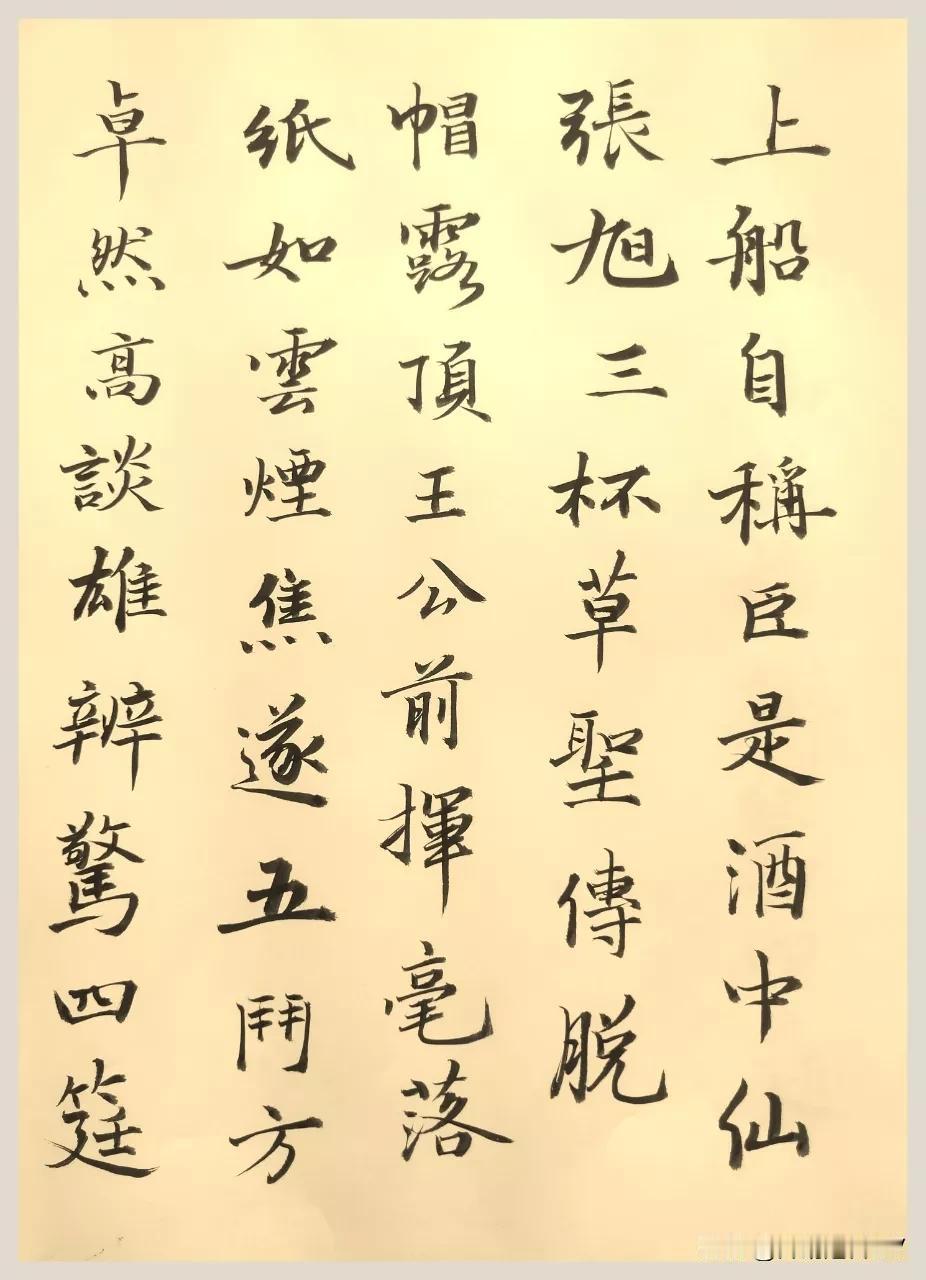 上船自稱臣是酒中仙
張旭三杯草聖傳脫
帽露頂王公前揮毫落
紙如雲煙焦遂五鬥方
卓然高談雄辨驚四筵